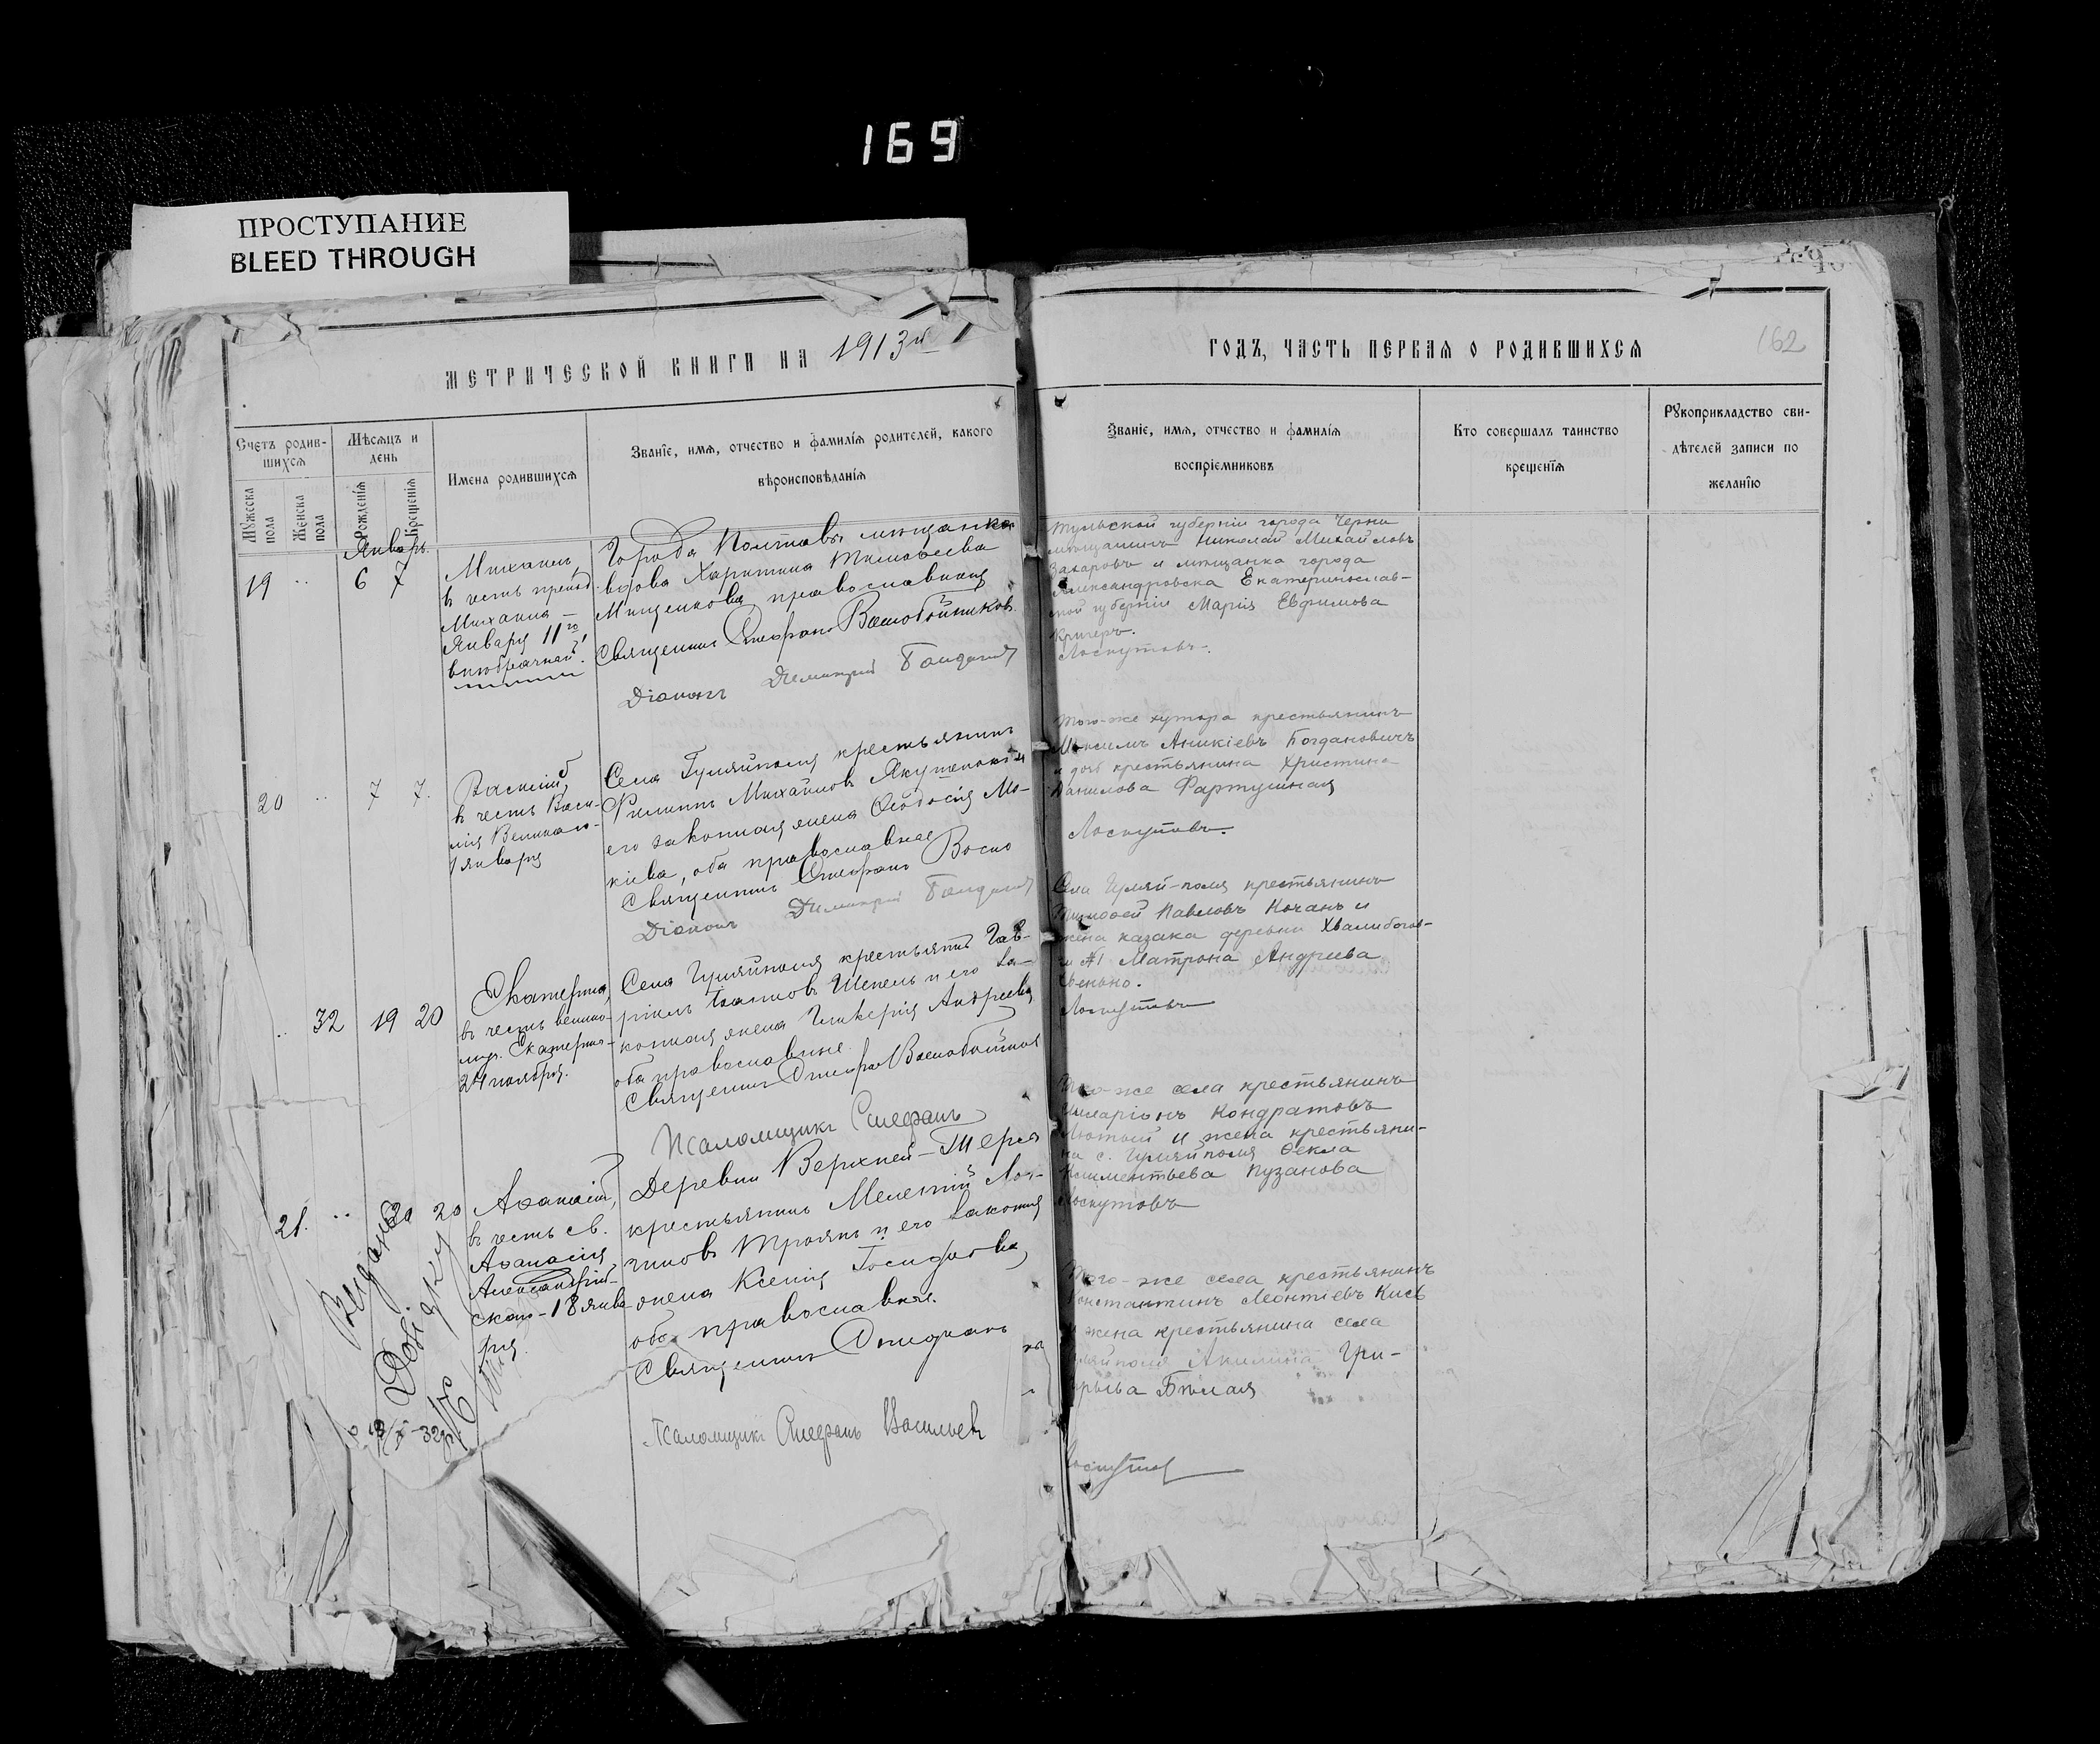 169
ПРОСТУПАНИЕ
BLEED THROUGH
МЕТРИЧЕСКОЙ КНИГИ НА 1913й
Счетъ родив-
шихся
Мѣсяцъ и
день
Мужеска
пола
Женска
пола
Рожденія
Крещенія
Имена родившихся
Званіе, имя, отчество и фамилія родителей, какого
вѣроисповѣданія
Январь
19 6 7
Михаилъ,
въ честь препод.
Михаила –
Января 11го
внѣбрачный.
Города Полтавы мѣщанка
вдова Харитина Тимоѳеева
Мищенкова, православная
Священникъ Стефанъ
Діаконъ Димитрій
20 7 7.
Василій,
въ честь Васи-
лія Великаго-
1 января
Села Гуляйполя крестьянинъ
Филиппъ Михайловъ и
его законная жена Ѳеодосія Мо-
кіева, оба православные
Священникъ Стефанъ
Діаконъ Димитрій
32 19 20
Екатерина,
въ честь велико-
муч. Екатерины-
24 ноября.
Села Гуляйполя крестьянинъ Гав-
ріилъ Іоанновъ Шепель и его за-
конная жена Гликерія Андреева
оба православные.
Священникъ Стефанъ
Псаломщикъ Стефанъ
21. 20 20
Аѳанасій,
въ честь св.
Аѳанасія
Александрій-
скаго-18 янва-
ря.
Деревни Верхней-Терсы
крестьянинъ Мелетій Лог-
гиновъ Троянъ и его законная
жена Ксенія Іосифова,
оба православные.
Священникъ Стефанъ
Псаломщикъ Стефанъ Васильевъ
ГОДЪ, ЧАСТЬ ПЕРВАЯ О РОДИВШИХСЯ
162
Званіе, имя, отчество и фамилія
воспріемниковъ
Кто совершалъ таинство
крещенія
Рукоприкладство сви-
дѣтелей записи по
желанію
Тульской губерніи города Черни
мѣщанинъ Николай Михайловъ
Захаровъ и мѣщанка города
Александровска Екатеринослав-
ской губерніи Марія Евфимова
Кригеръ.
Лоскутовъ.
Того-же хутора крестьянинъ
Максимъ Аникіевъ Богдановичъ
и дочь крестьянина Христина
Данилова Фартушная
Лоскутовъ.
Села Гуляй-поля крестьянинъ
Тимоѳей Павловъ Кочанъ и
жена казака деревни
№1 Матрона Андреева
Лоскутовъ
Того-же села крестьянинъ
Илларіонъ Кондратовъ
Лютый и жена крестьяни-
на с. Гуляйполя Ѳекла
Климентьева Пузанова
Лоскутовъ
Того-же села крестьянинъ
Константинъ Леонтіевъ Кись
и жена крестьянина села
Гуляйполя Акилина Гри-
горьева Бѣлая
Лоскутовъ